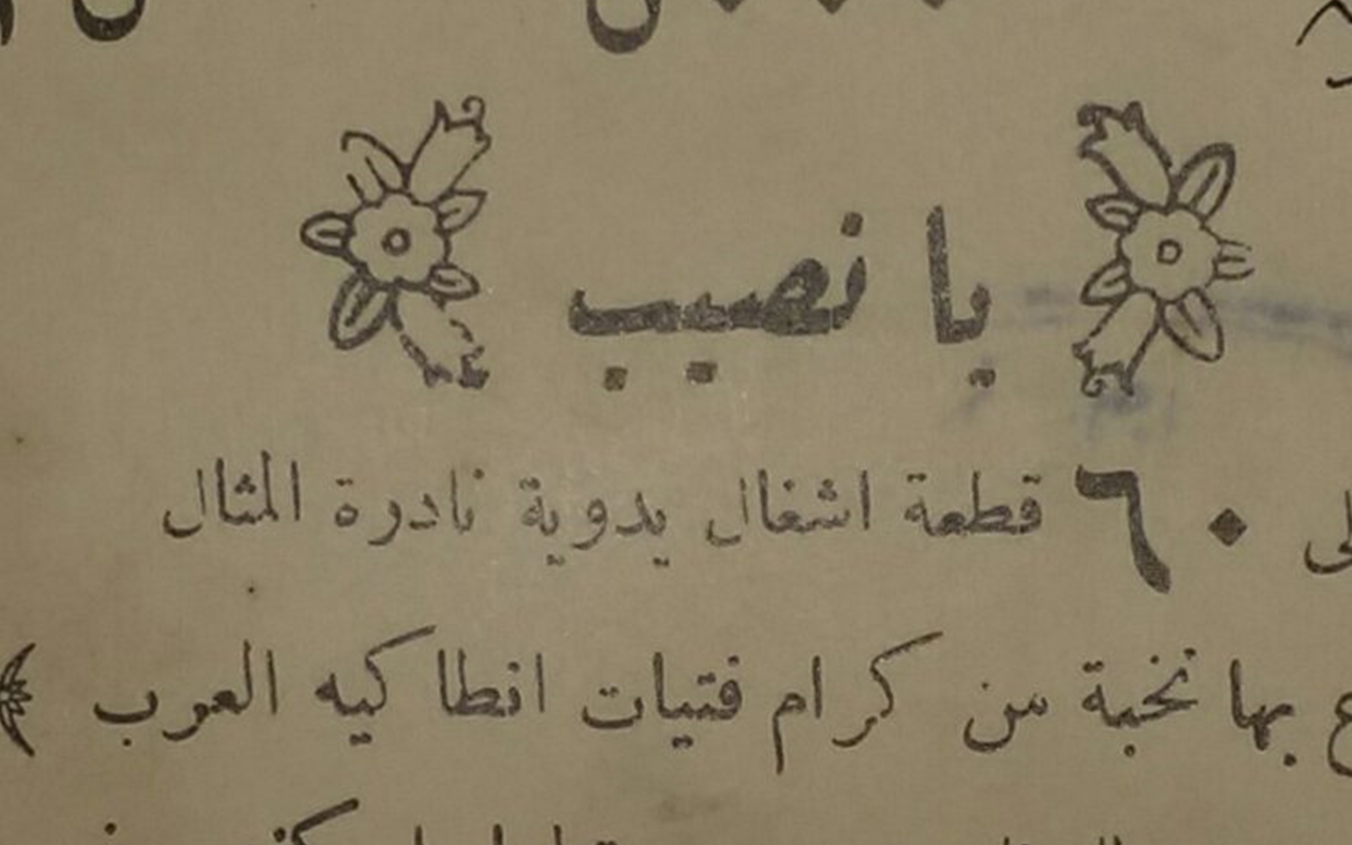 يا نصيب
٦٠ قطعة اشغال يدوية نادرة المثال
بها نخبة من كرام فتيات انطاكيه العرب